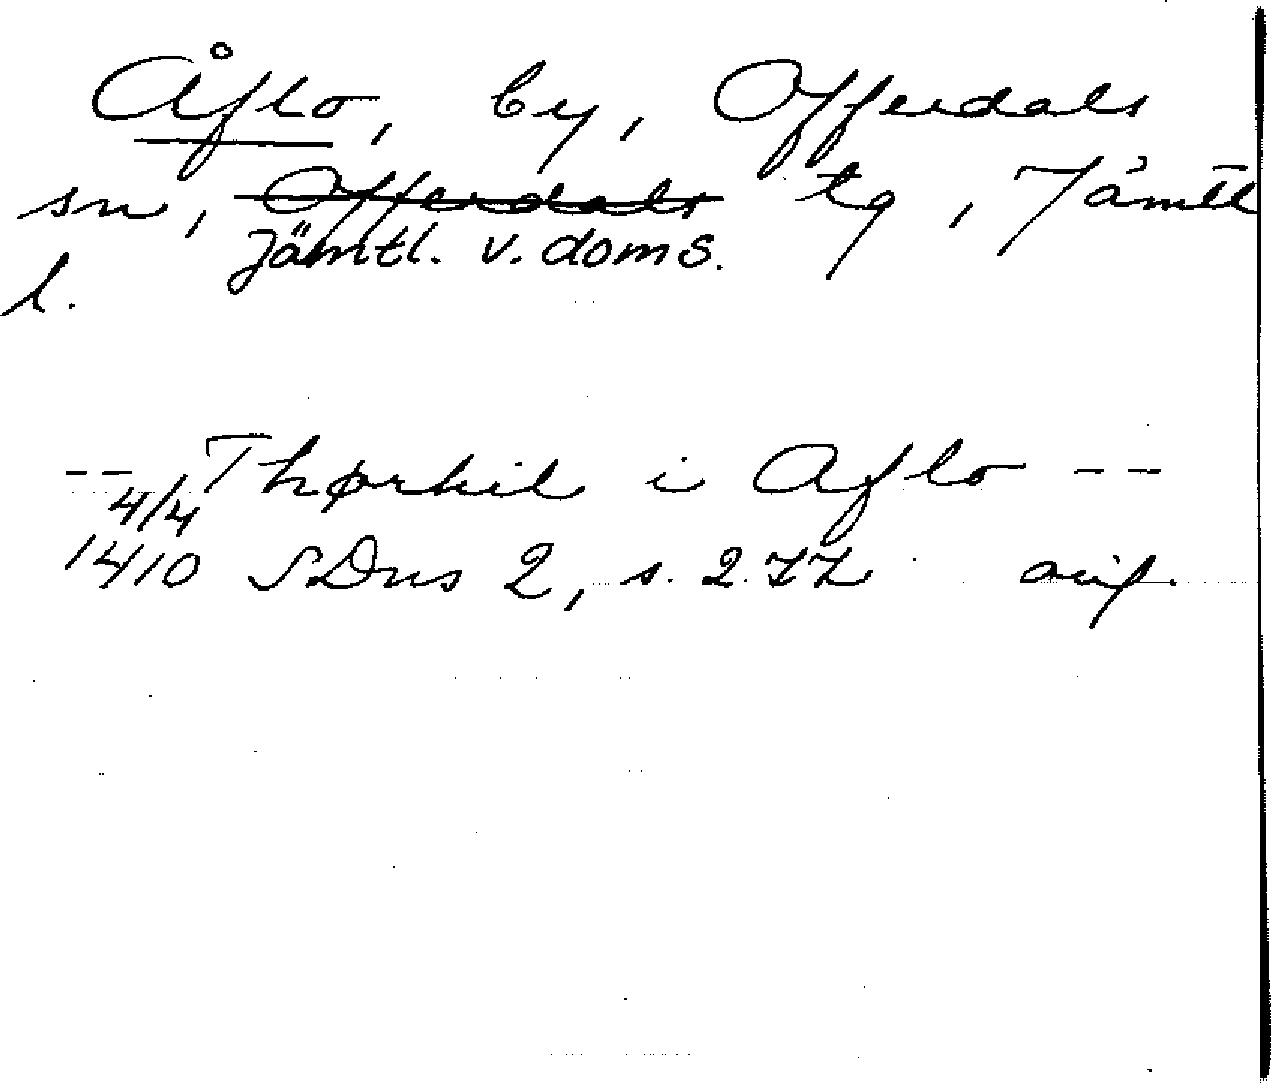 Åflo, by, Offerdals
sn, Offerdals tg, Jämtl
Jämtl. v. doms.
l.
-- Thørkil i Aflo --
4/4
1410 SDns 2, s. 277 avsкr.